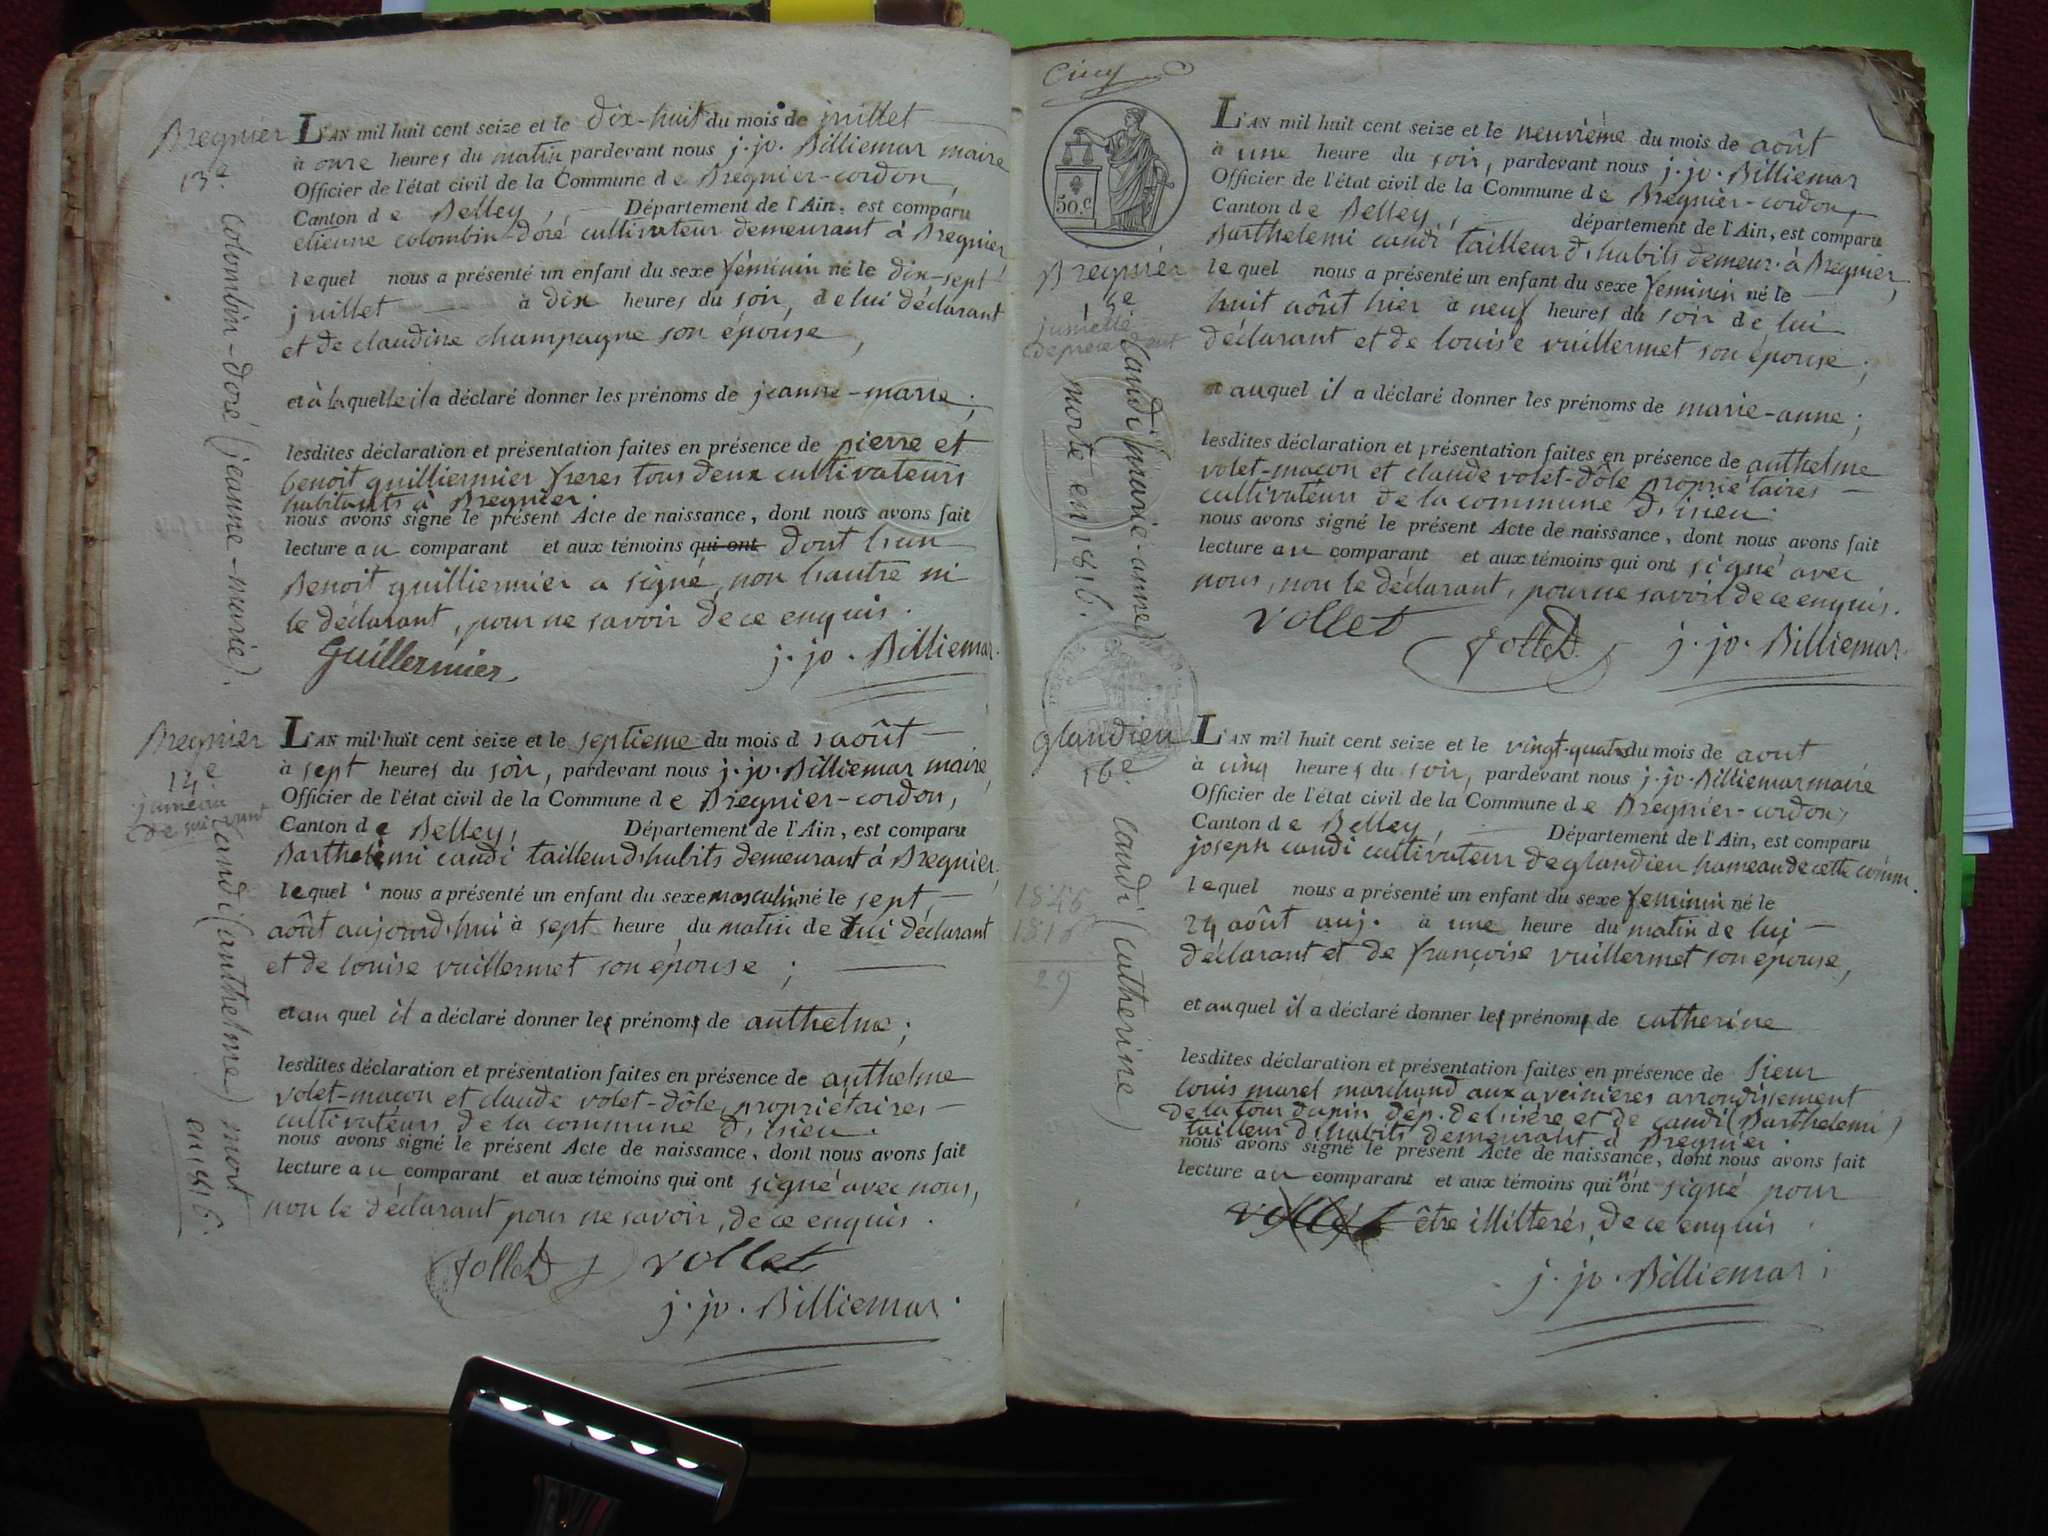 Bregnier
13e.
colombin-doré (jeanne-marie).
L'AN mil huit cent seize et le dix-huit du mois de juillet
à onze heures du matin pardevant nous j. jo. Billiemar maire
Officier de l'état civil de la Commune de Bregnier-cordon,
Canton de Belley, Département de l'Ain, est comparu
etienne colombin-doré cultivateur demeurant à Bregnier
lequel nous a présenté un enfant du sexe féminin né le dix-sept
juillet à dix heures du soir, de lui déclarant
et de claudine champagne son épouse,
et à laquelle il a déclaré donner les prénoms de jeanne-marie;
lesdites déclaration et présentation faites en présence de pierre et
benoit guilliermier freres tous deux cultivateurs
habitants à Bregnier.
nous avons signé le présent Acte de naissance, dont nous avons fait
lecture au comparant et aux témoins qui ont dont l'un
Benoit guilliermier a signé, non l'autre ni
le déclarant, pour ne savoir de ce enquis.
Guillermier
j. jo. Billiemar.
Bregnier
14e
jumeau
de suivant
candi (anthelme) mort
en 1816.
L'AN mil huit cent seize et le septieme du mois d'août
à sept heures du soir, pardevant nous j. jo. Billiemar maire
Officier de l'état civil de la Commune de Bregnier-cordon,
Canton de Belley, Département de l'Ain, est comparu
Barthelemi candi tailleur d'habits demeurant à Bregnier,
lequel nous a présenté un enfant du sexe masculin né le sept
août aujourd'hui à sept heure du matin de lui déclarant
et de louise vuillermet son epouse;
et au quel il a déclaré donner les prénoms de anthelme;
lesdites déclaration et présentation faites en présence de anthelme
volet-maçon et claude volet-dôle, propriétaires
cultivatéurs de la commune d'isieu.
nous avons signé le présent Acte de naissance, dont nous avons fait
lecture au comparant et aux témoins qui ont signé avec nous,
non le déclarant pour ne savoir, de ce enquis.
vollet
j. jo. Billiemar.
Cinq
50.c
Bregnier
15e
jumelle
candi (marie-anne)
morte en 1816.
L'AN mil huit cent seize et le neuvième du mois de août
à une heure du soir, pardevant nous j. jo. Billiemar
Officier de l'état civil de la Commune de Bregnier-cordon,
Canton de Belley, département de l'Ain, est comparu
Barthelemi candi tailleur d'habits demeur. à Bregnier,
lequel nous a présenté un enfant du sexe feminin né le
huit août hier à neuf heures du soir de lui
déclarant et de louise vuillermet son épouse;
et auquel il a déclaré donner les prénoms de marie-anne;
lesdites déclaration et présentation faites en présence de anthelme
volet-maçon et claude volet-dôle propriétaires
cultivatéurs de la commune d'isieu.
nous avons signé le présent Acte de naissance, dont nous avons fait
lecture au comparant et aux témoins qui ont signé avec
nous, non le déclarant, pour ne savoir de ce enquis.
vollet
j. jo. Billiemar.
glandieu
16e.
candi (catherine)
1845
1816
29
L'AN mil huit cent seize et le vingt-quatre du mois de aout
à cinq heures du soir, pardevant nous j. jo. Billiemar maire
Officier de l'état civil de la Commune de Bregnier-cordon,
Canton de Belley, Département de l'Ain, est comparu
joseph candi cultivateur de glandieu hameau de cette comm.
lequel nous a présenté un enfant du sexe feminin né le
24 août auj. à une heure du matin de lui
déclarant et de françoise vuillermet son epouse,
et auquel il a déclaré donner les prénoms de catherine
lesdites déclaration et présentation faites en présence de sieur
louis marel marchand aux aveinières arrondissement
de la tour dupin dép. de l'isère et de candi (Barthelemi)
tailleur d'habits demeurant à Bregnier.
nous avons signé le présent Acte de naissance, dont nous avons fait
lecture au comparant et aux témoins qui n'ont signé pour
être illiterés, de ce enquis
j. jo. Billiemar.